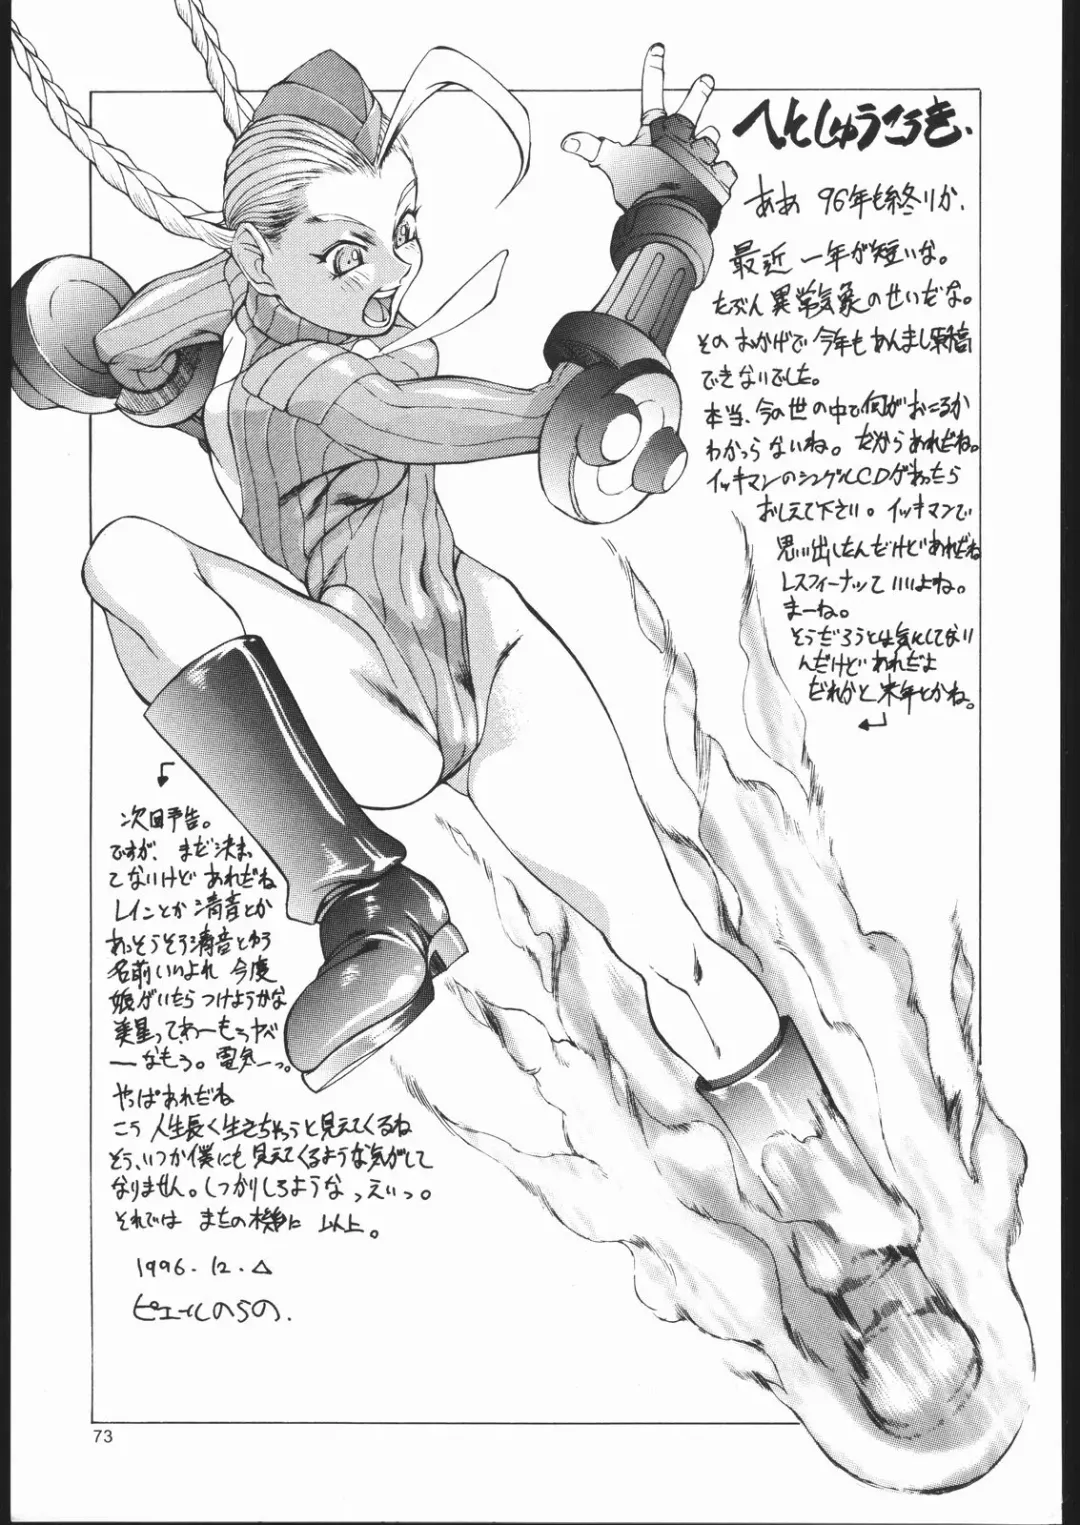 へんしゅうこうき、
ああ 96年も終りか、
最近 一年が短いな。
たぶん 異常気象のせいだな。
そのおかげで 今年もあんまし原稿
できないでした。
本当、今の世の中で何がおこるか
わかっらないね。だからあれだね。
イッキマンのシングルCDがあったら
おしえて下さい。イッキマンで
思い出したんだけどあれだね
レスフィーナッていいよね。
まーね。
そうだろうとは気にしてない
んだけどあれだよ
だれかと 来年とかね。
次回予告。
ですが、まだ決まっ
てないけど あれだね
レインとか 清音とか
あっそうそう清音とゆう
名前いいよね 今度
娘がいたら つけようかな
美星ってわーもうヤベ
ーなもう。電気ーっ。
やっぱあれだね
こう 人生長く生きちゃうと見えてくるね
そう、いつか僕にも見えてくるような気がして
なりません。しっかりしろよなっえいっ。
それでは またの機会に 以上。
1996.12.△
ピエールのらの.
73